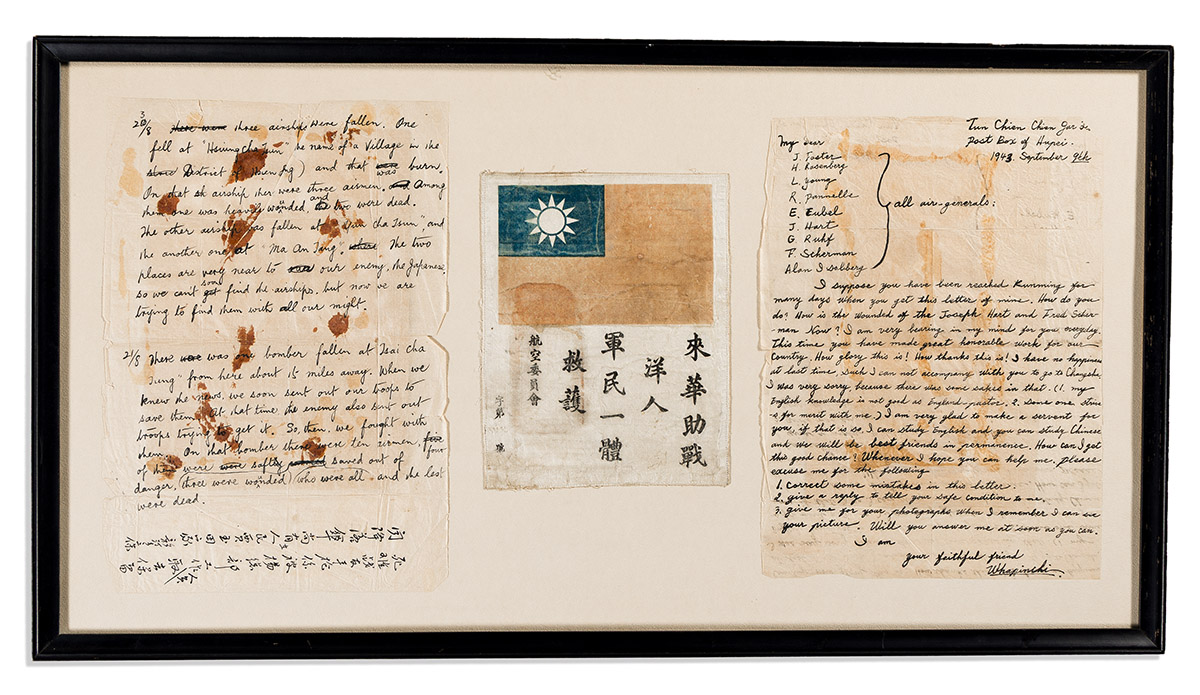 20/8 there were three airships were fallen. One
fell at "Hsiung cha Tsun" the name of a village in the
District of and that was burn.
On that airship ther were three airmen, Among
them one was heavily wounded, and two were dead.
The other airship was fallen at cha Tsun", and
the another one at "Ma An Tang". where The two
places are very near to our enemy, the Japanese,
so we can't get soon find the airships. but now we are
trying to find them with all our might.
21/8 There were was one bomber fallen at "Tsai cha
Tung" from here about 15 miles away. When we
knew the news, we soon sent out our troops to
save them. At that time the enemy also sent out
troops trying to get it. So, then, we fought with
them. On that bomber there were ten airmen, four
of them were were safely saved out of
danger, (three were wonded) who were all and the last
were dead.
來華助戰
洋人
軍民一體
救護
航空委員會
字第 號
Tun Chien Chien
Post Box of Hupei.
1943. September 9th
My dear
J. Foster
H. Rosenberg
L. Young
R. Pannelle
E. Eubel
J. Hart
G. Ruhf
F. Scherman
Alan J Solberg
all air-generals:
I suppose you have been reached Kunming for
many days when you get this letter of mine. How do you
do? How is the wounded of the Joseph Hart and Fred Scher-
-man Now? I am very bearing in my mind for you everyday.
This time you have made great honorable work for our
Country. How glory this is! How thanks this is! I have no happiness
at last time, such I can not accompany with you to go to Changsha,
I was very sorry because there was some sakes in that. (1. my
English knowledge is not good as England-pastor. 2. Some one
is for merit with me.) I am very glad to make a servant for
you, if that is so, I can study English and you can study Chinese
and we will be best friends in permanence. How can I get
this good chance? Whenever I hope you can help me. Please
excuse me for the following
1. correct some mistakes in this letter.
2. give a reply to tell your safe condition to me.
3. give me for your photographs when I remember I can see
your picture. Will you answer me at soon as you can.
I am
your faithful friend
Whapinchi